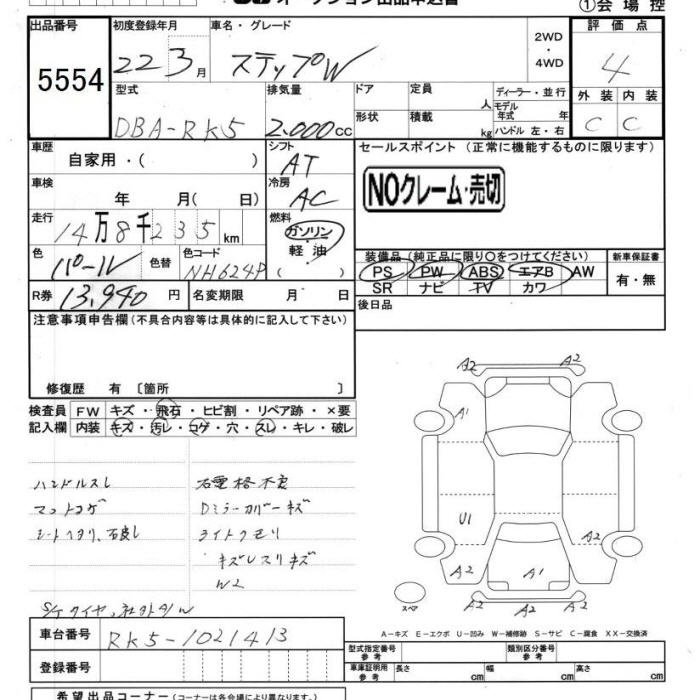 ①会場控
出品番号
5554
初度登録年月
22 3月
車名・グレード
ステップW
2WD
・
4WD
評価点
4
外装 内装
C C
型式
DBA-RK5
排気量
2.000cc
ドア
定員
人
形状
積載
kg
ディーラー・並行
モデル年式 年
ハンドル 左・右
車歴
自家用・( )
シフト
AT
車検
年 月( 日)
冷房
AC
走行
14万8千235km
燃料
ガソリン
軽・油
( )
色
パール
色替
色コード
NH624P
R券
13,940円
名変期限 月 日
セールスポイント (正常に機能するものに限ります)
NOクレーム・売切
装備品(純正品に限り○をつけてください)
PS PW ABS エアB AW
SR ナビ TV カワ
新車保証書
有・無
後日品
注意事項申告欄(不具合内容等は具体的に記入して下さい)
修復歴 有 〔箇所 〕
検査員記入欄
FW キズ・飛石・ヒビ割・リペア跡・×要
内装 キズ・汚レ・コゲ・穴・スレ・キレ・破レ
ハンドルスレ
マットコゲ
右電格不良
Dミラーカバーキズ
ライトクモリ
キズレスリキズ
W2
A2 A2
A1
U1
A2
A2 A1 A2
スペア
A-キズ E-エクボ U-凹み W-補修跡 S-サビ C-腐食 XX-交換済
車台番号
RK5-1021413
登録番号
型式指定番号 参考
類別区分番号 参考
車庫証明用 参考
長さ cm
幅 cm
高さ cm
希望出品コーナー(コーナーは各会場により異なります。)